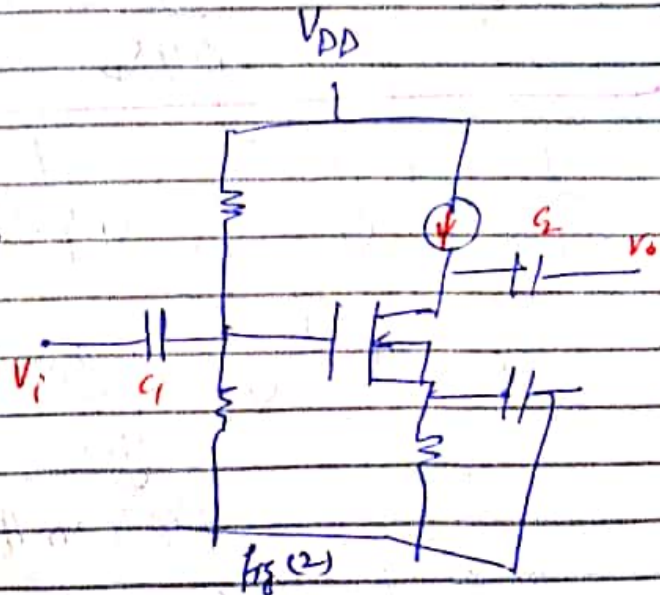 VDD
C2
Vo
Vi
C1
fig (2)